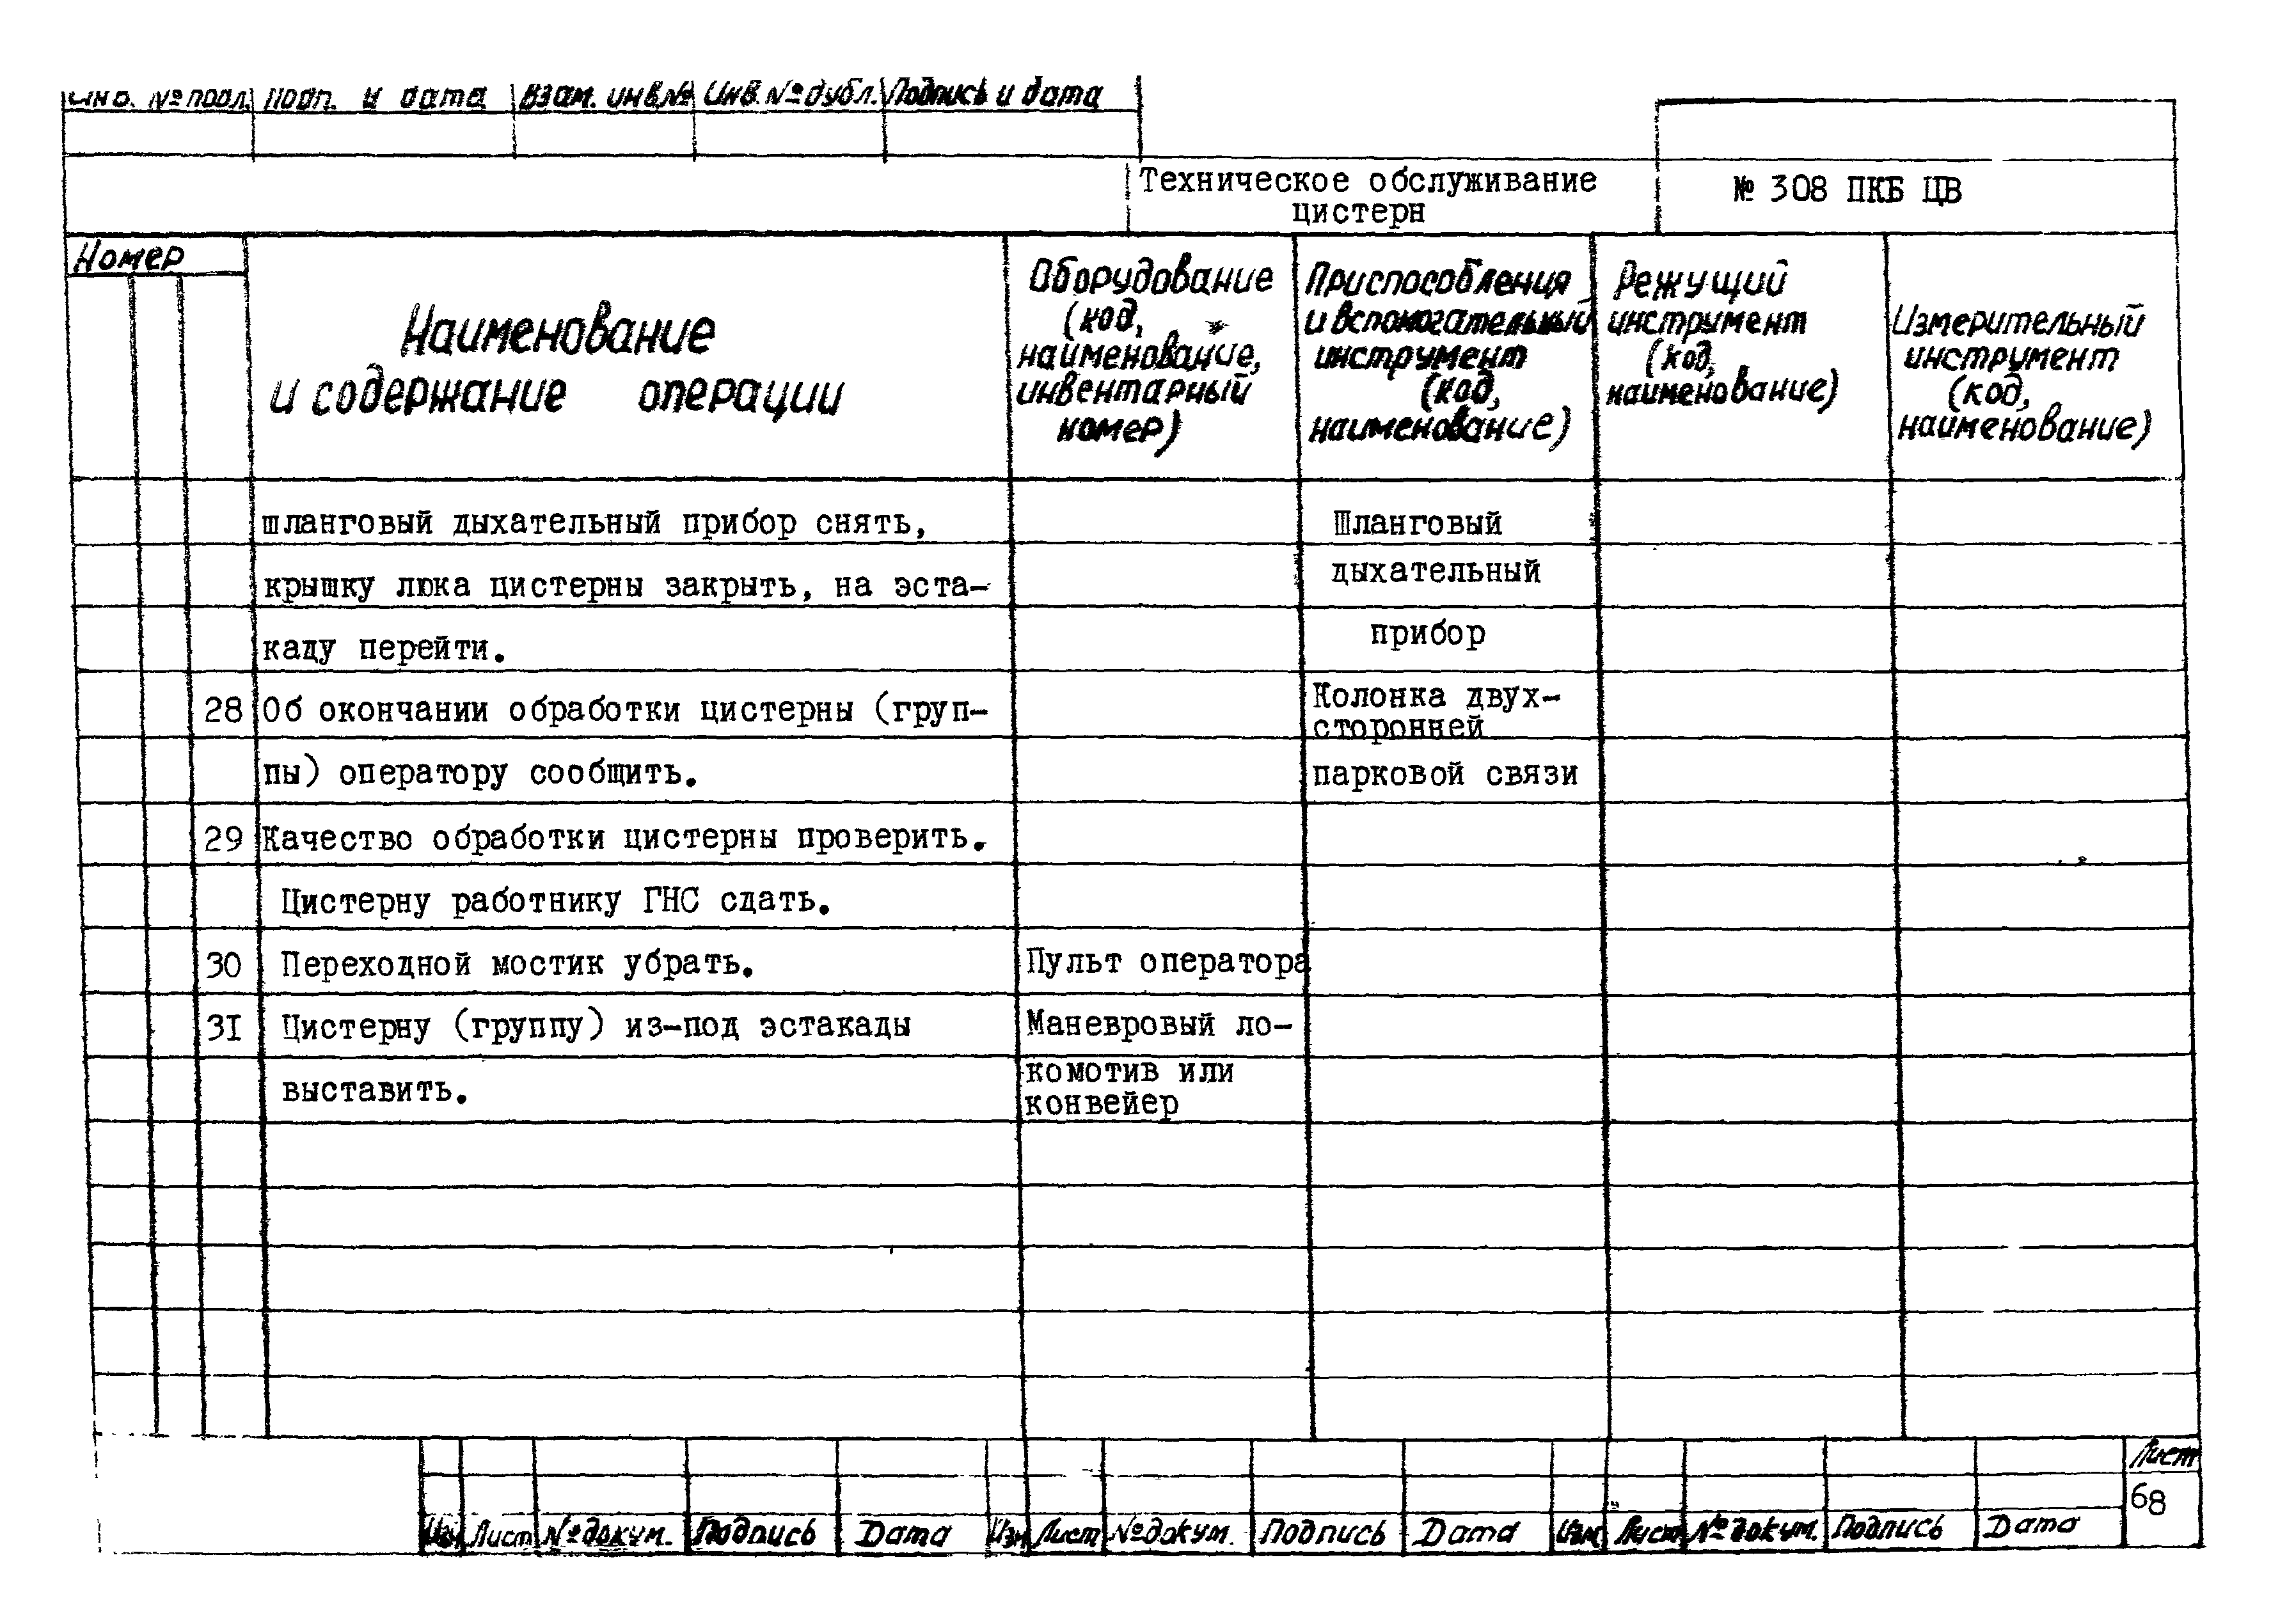 Инв. № подл. Подп. и дата Взам. инв.№ Инв. № дубл. Подпись и дата
Техническое обслуживание
цистерн
№ 308 ПКБ ЦВ
Номер
Наименование
и содержание операции
Оборудование
(код,
наименование,
инвентарный
номер)
Приспособления
и вспомогательный
инструмент
(код,
наименование)
Режущий
инструмент
(код,
наименование)
Измерительный
инструмент
(код,
наименование)
шланговый дыхательный прибор снять,
Шланговый
крышку люка цистерны закрыть, на эста-
дыхательный
каду перейти.
прибор
28 Об окончании обработки цистерны (груп-
Колонка двух-
сторонней
пы) оператору сообщить.
парковой связи
29 Качество обработки цистерны проверить.
Цистерну работнику ГНС сдать.
30 Переходной мостик убрать. Пульт оператора
3I Цистерну (группу) из-под эстакады Маневровый ло-
выставить.
комотив или
конвейер
Лист
68
Изм Лист № докум. Подпись Дата Изм Лист № докум. Подпись Дата Изм Лист № докум. Подпись Дата